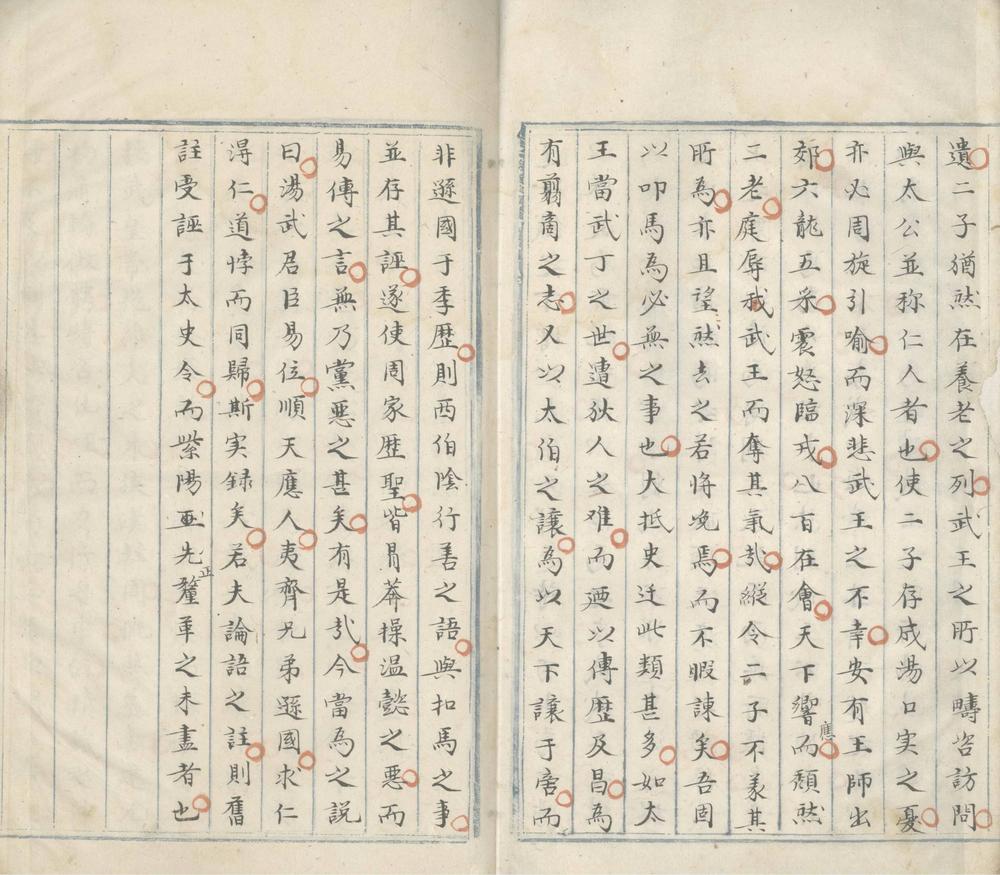 遺二子猶然在養老之列武王之所以疇咨訪問
與太公並称仁人者也使二子存成湯口实之憂
亦必周旋引喻而深悲武王之不幸安有王師出
郊六龍五采震怒臨戎八百在會天下響應而頹然
二老庭辱我武王而奪其氣㢤縱令二子不羕其
所為亦且望然去之若將浼焉而不暇諫矣吾固
以叩馬為必無之事也大抵史迁此類甚多如太
王當武丁之世遭狄人之难而廼以傳歷及昌為
有翦商之志又以太伯之讓為以天下讓于商而
非遜國于季歷則西伯陰行善之語與扣馬之事
並存其誣遂使周家歴聖皆冐莽操温懿之惡而
易傳之言無乃黨惡之甚矣有是㢤今當為之説
曰湯武君臣易位順天應人夷齊兄弟遜國求仁
淂仁道悖而同歸斯实録矣若夫論語之註則舊
註受誣于太史令而紫陽亟先正釐革之未盡者也